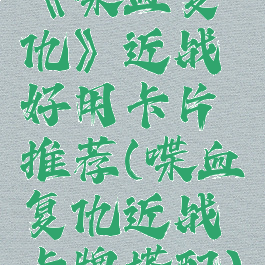 《喋血复
仇》近战
好用卡片
推荐(喋血
复仇近战
卡牌搭配)